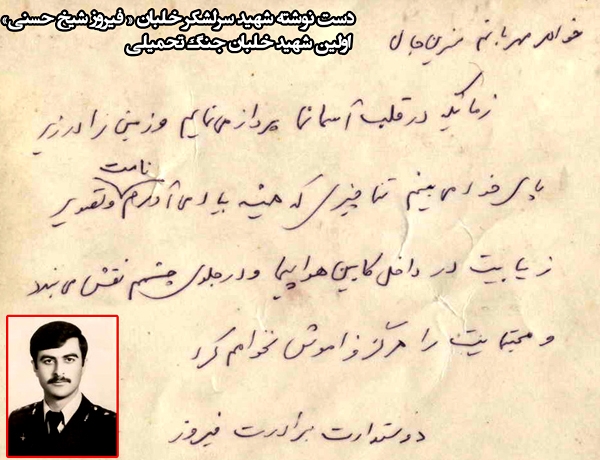 دست نوشته شهید سرلشکر خلبان « فیروز شیخ حسنی»
اولین شهید خلبان جنگ تحمیلی
خواهر مهربانم نسرین جان
زمانیکه در قلب آسمانها پرواز می‌نمایم و زمین را در زیر
پای خود می بینم تنها چیزی که همیشه بیاد می آورم نامت و تصویر
زیبایت در داخل کابین هواپیما و در جلوی چشمم نقش می بندد
و محبتهایت را هرگز فراموش نخواهم کرد
دوستدارت برادرت فیروز